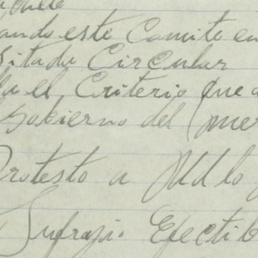 ando este Comite en
sitada Circular
el Criterio que
Gobierno del
Protesto a Ud lo
Sufragio Efectib